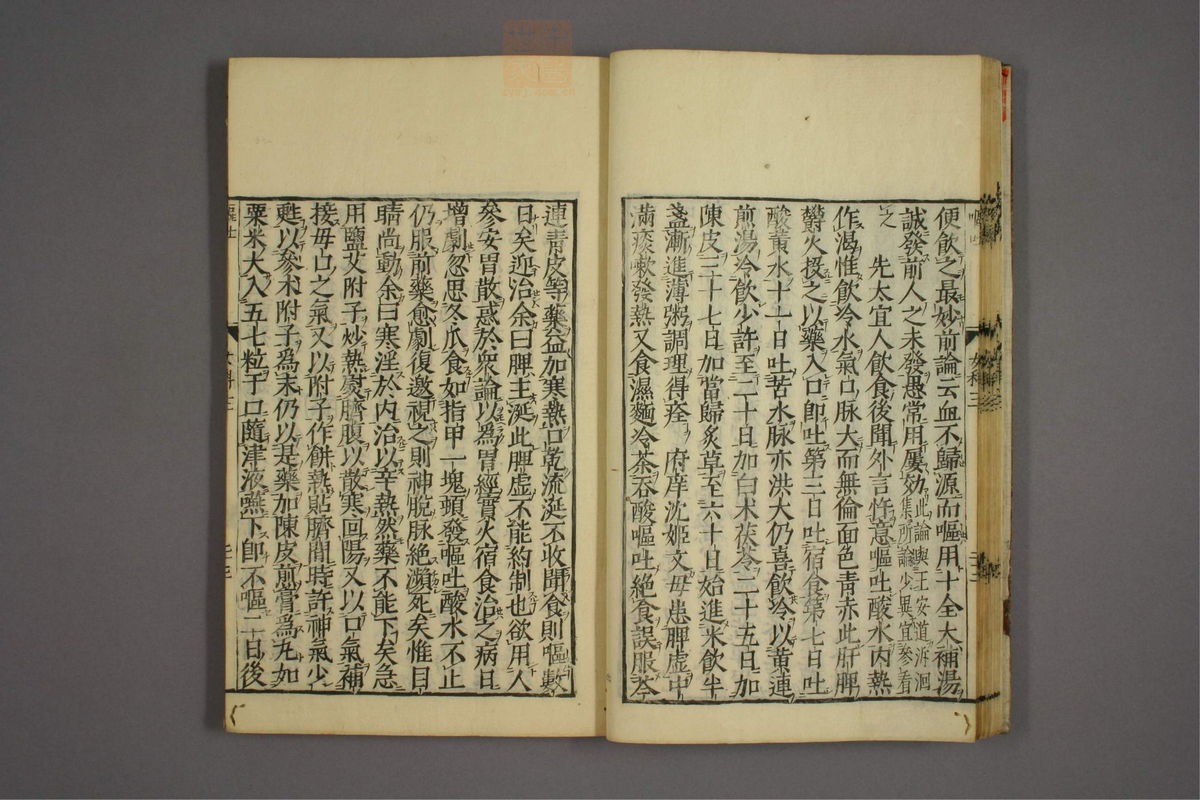 便飲之最妙前論云血不歸源而嘔用十全大補湯
誠發前人之未發愚常用屢効此論與王安道泝洄集所論少異宜參看
之　先太宜人飲食後聞外言忤意嘔吐酸水内熱
作渴惟飲冷水氣口脉大而無倫面色青赤此肝脾
欝火投之以藥入口即吐第三日吐宿食第七日吐
酸黄水十一日吐苦水脉亦洪大仍喜飲冷以黄連
煎湯冷飲少許至二十日加白术茯苓二十五日加
陳皮三十七日加當歸炙草至六十日始進米飲半
盞漸進薄粥調理得痊　府庠沈姬文母患脾虛中
滿痰嗽發熱又食濕麵冷茶吞酸嘔吐絶食誤服芩
連青皮等藥益加寒熱口乾流涎不收聞食則嘔數
日矣迎治余曰脾主涎此脾虛不能約制也欲用人
參安胃散惑於衆論以爲胃經實火宿食治之病日
增劇忽思冬瓜食如指甲一塊頭發嘔吐酸水不止
仍服前藥愈劇復邀視之則神脫脉絶瀕死矣惟目
睛尚動余曰寒淫於内治以辛熱然藥不能下矣急
用鹽艾附子炒熱熨臍腹以散寒回陽又以口氣補
接母口之氣又以附子作餅熱貼臍間時許神氣少
甦以參术附子爲末仍以是藥加陳皮煎膏爲丸如
粟米大入五七粒于口隨津液嚥下即不嘔二日後
女科三